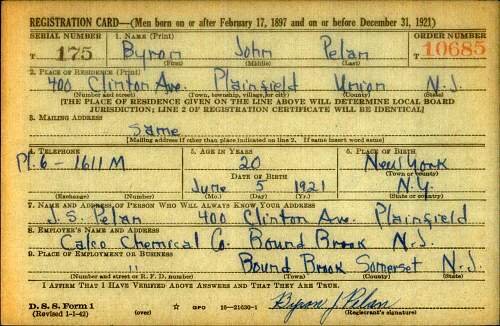 REGISTRATION CARD—(Men born on or after February 17, 1897 and on or before December 31, 1921)
SERIAL NUMBER 1. NAME (Print) ORDER NUMBER
T 175 Byron John Pelan T 10685
(First) (Middle) (Last)
2. PLACE OF RESIDENCE (Print)
400 Clinton Ave. Plainfield Union N.J.
(Number and street) (Town, township, village, or city) (County) (State)
[THE PLACE OF RESIDENCE GIVEN ON THE LINE ABOVE WILL DETERMINE LOCAL BOARD
JURISDICTION; LINE 2 OF REGISTRATION CERTIFICATE WILL BE IDENTICAL]
3. MAILING ADDRESS
Same
[Mailing address if other than place indicated on line 2. If same insert word same]
4. TELEPHONE 5. AGE IN YEARS 6. PLACE OF BIRTH
Pl. 6-1611 M 20 New York
DATE OF BIRTH (Town or county)
June 5 1921 N.Y.
(Exchange) (Number) (Mo.) (Day) (Yr.) (State or country)
7. NAME AND ADDRESS OF PERSON WHO WILL ALWAYS KNOW YOUR ADDRESS
J.S. Pelan 400 Clinton Ave. Plainfield
8. EMPLOYER'S NAME AND ADDRESS
Calco Chemical Co. Bound Brook N.J.
9. PLACE OF EMPLOYMENT OR BUSINESS
" Bound Brook Somerset N.J.
(Number and street or R. F. D. number) (Town) (County) (State)
I AFFIRM THAT I HAVE VERIFIED ABOVE ANSWERS AND THAT THEY ARE TRUE.
D. S. S. Form 1 GPO 16—21630-1 Byron J Pelan
(Revised 1-1-42) (over) (Registrant's signature)